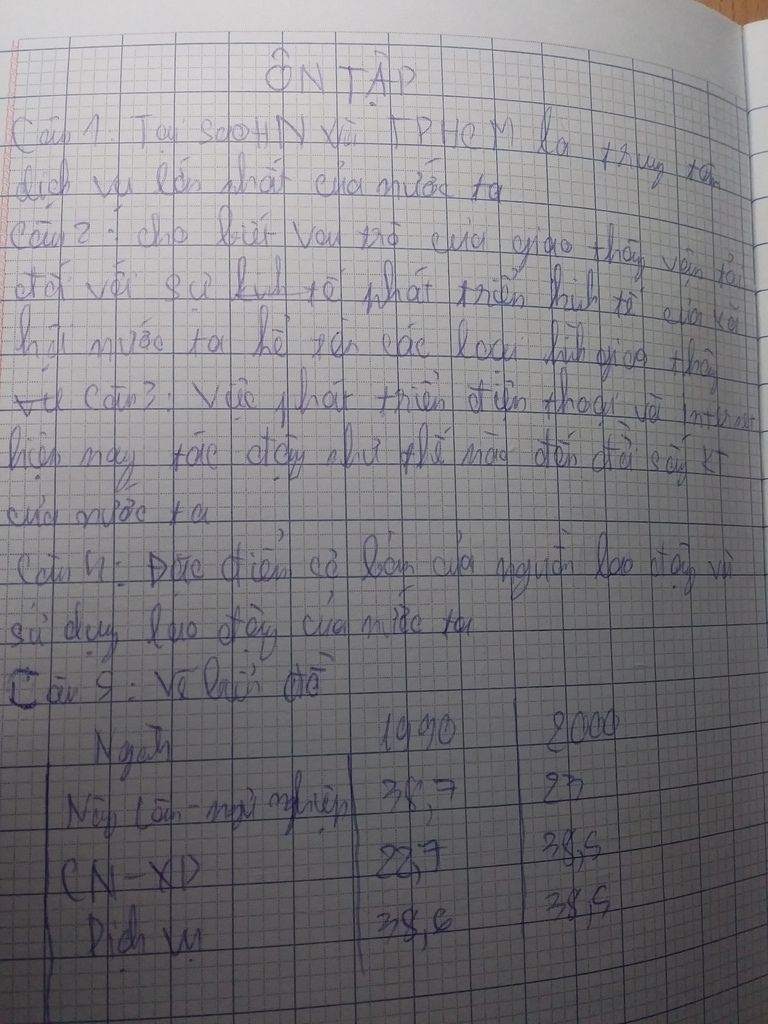 ÔN TẬP
Câu 1: Tại sao HN và TPHCM là trung tâm
dịch vụ lớn nhất của nước ta
Câu 2: cho biết vai trò của giao thông vận tải
đối với sự kinh tế phát triển kinh tế của xã
hội nước ta kể tên các loại hình giao thông
Câu 3: Việc phát triển điện thoại và internet
hiện nay tác động như thế nào đến đời sống KT
của nước ta
Câu 4: Đặc điểm cơ bản của nguồn lao động và
sử dụng lao động của nước ta
Câu 5: Vẽ biểu đồ
Ngành 1990 2000
Nông Lâm-ngư nghiệp 38,7 23
CN-XD 22,7 38,5
Dịch vụ 38,6 38,5